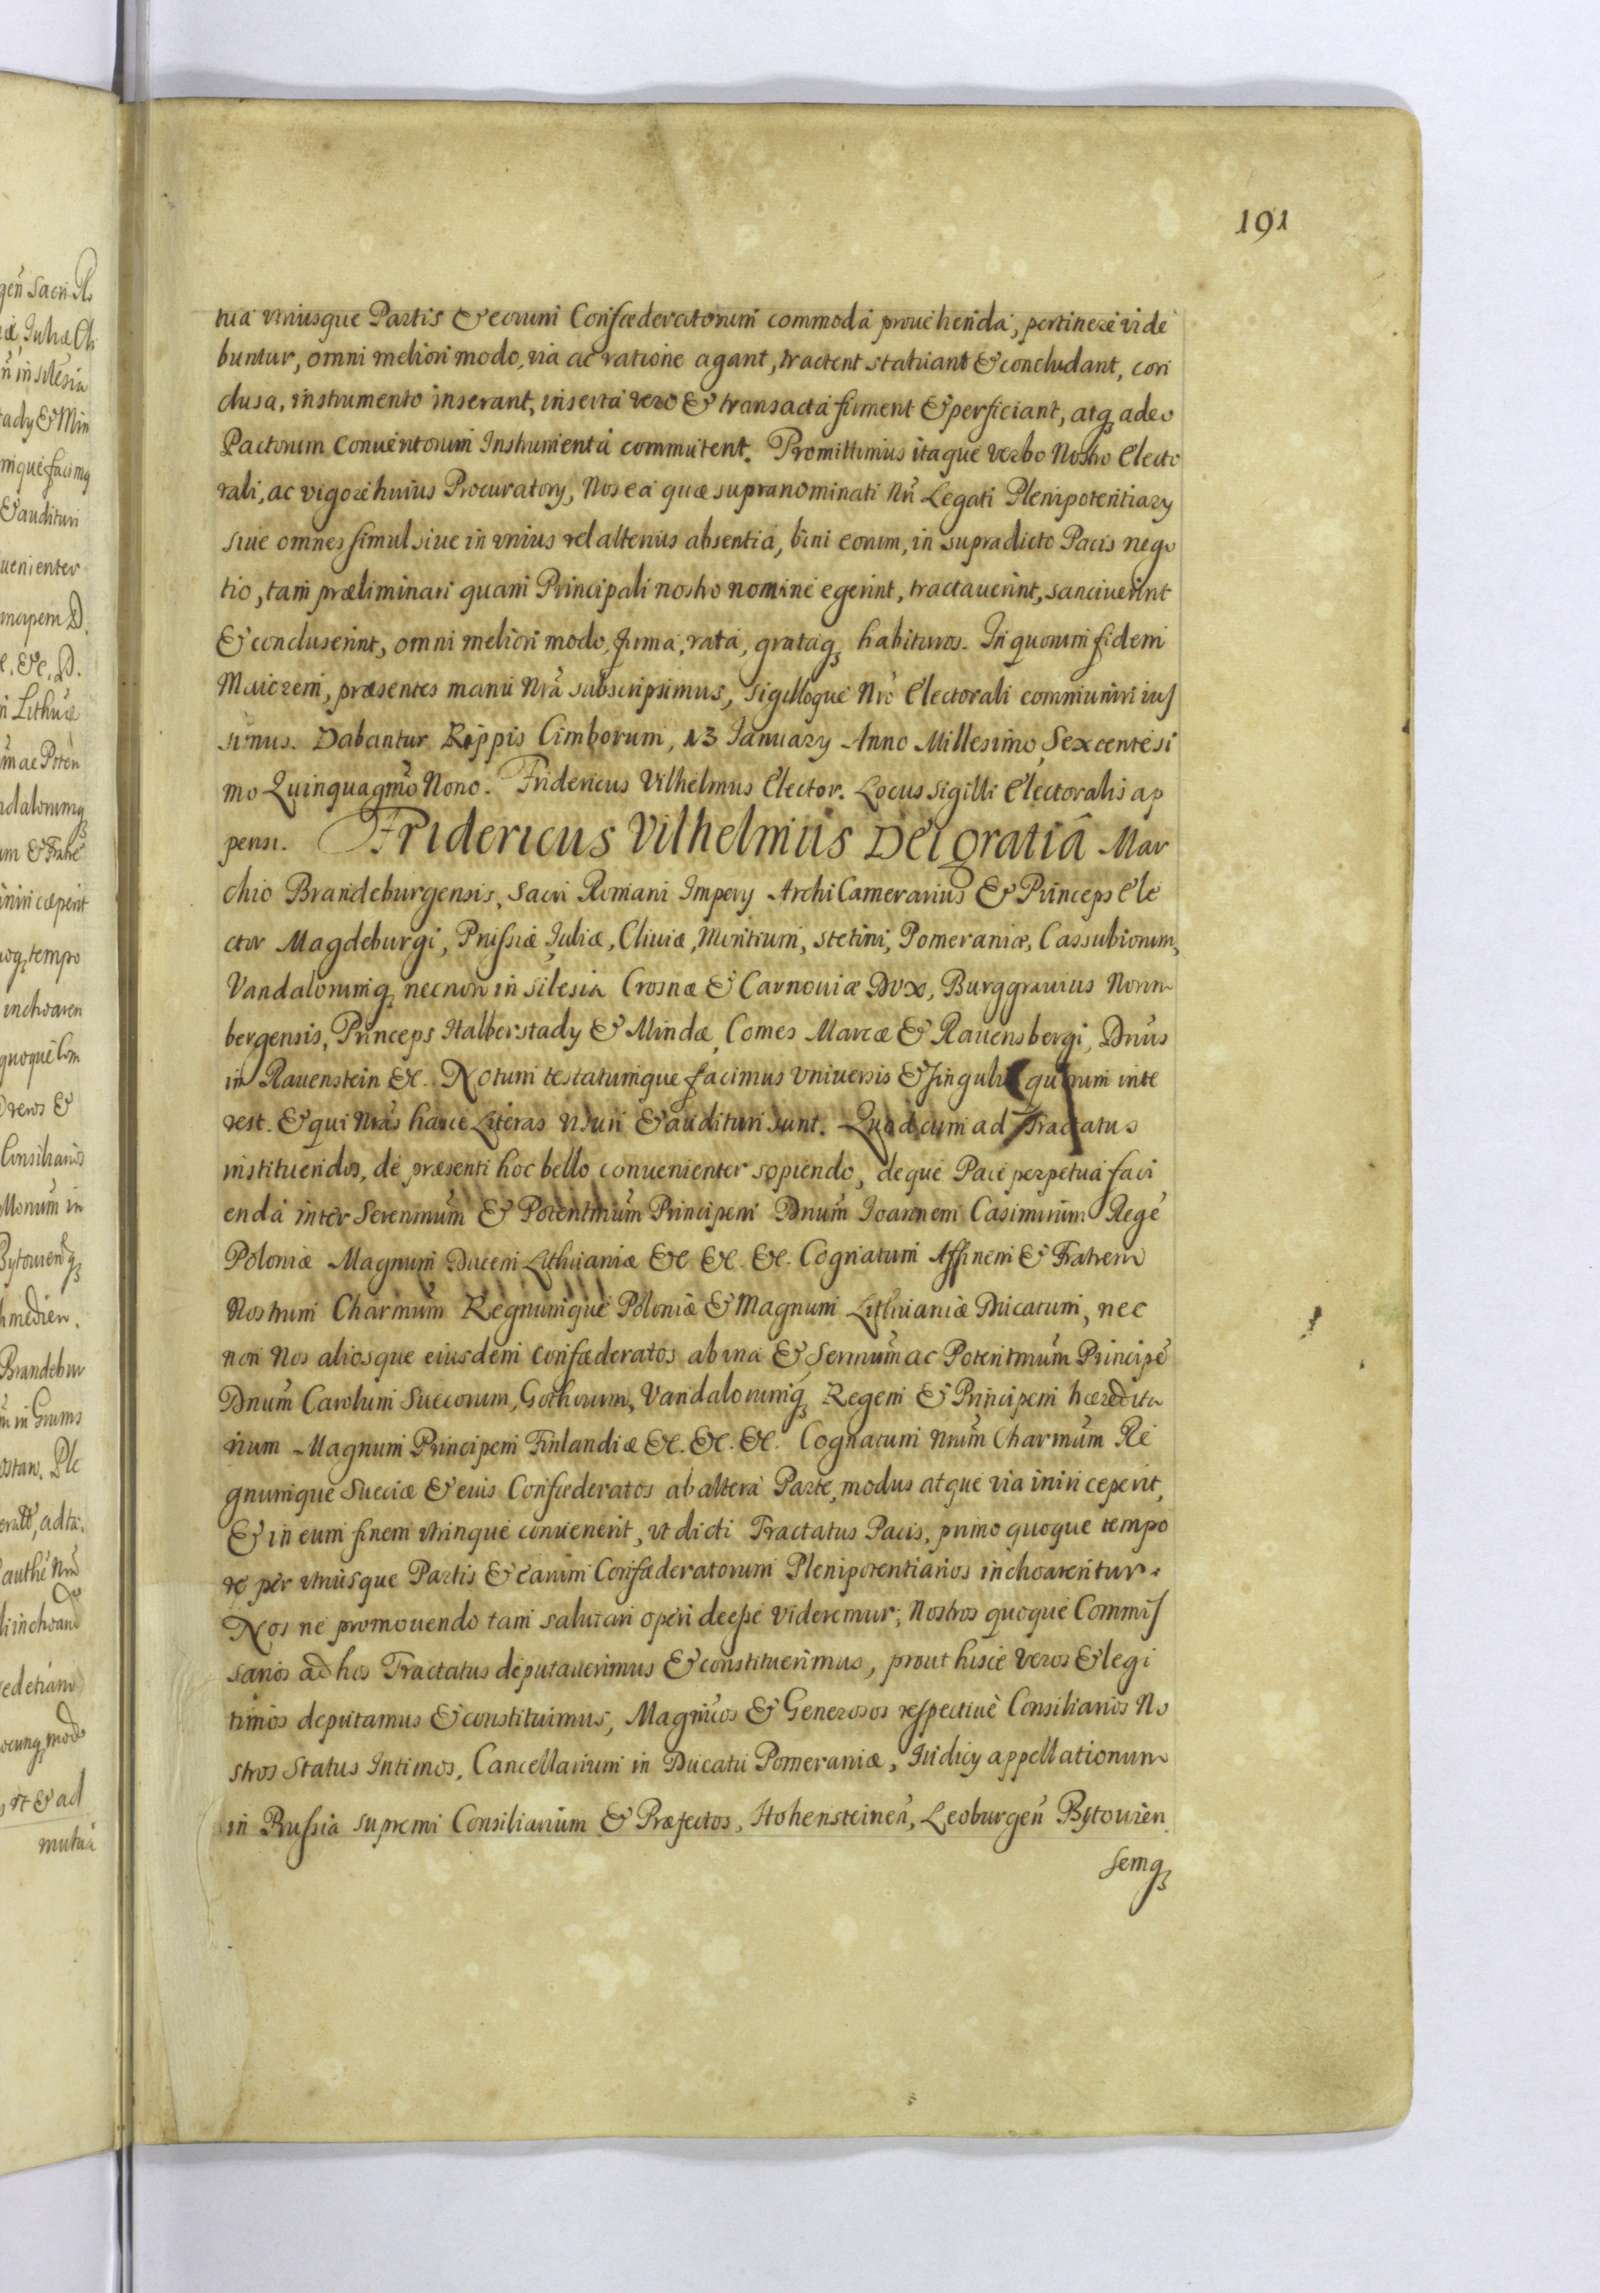 191
tua vtriusque Partis & eorum Confœderatorum commoda prouehenda, pertinere vide
buntur, omni meliori modo, via ac ratione agant, tractent statuant & concludant, con
clusa, instrumento inserant, inserta vero & transacta firment & perficiant, atq3 adeo
Pactorum Conuentorum Instrumenta commutent. Promittimus itaque verbo Nostro Electo
rali, ac vigore huius Procuratorij, Nos ea quæ supranominati Nrĩ Legati Plenipotentiarij
siue omnes simul siue in vnius vel alterius absentia, bini eorum, in supradicto Pacis nego
tio, tam præliminari quam Principali nostro nomine egerint, tractauerint, sanciuerint
& concluserint, omni meliori modo, firma, rata, grataq3 habituros. In quorum fidem
Maiorem, præsentes manu Nrâ subscripsimus, Sigilloque Nrõ Electorali communiri ius
simus. Dabantur Rippis Cimborum, 23 Ianuarij Anno Millesimo Sexcentesi
mo Quinquagmõ Nono. Fridericus Vilhelmus Elector. Locus Sigilli Electoralis ap
pensi. Fridericus Vilhelmus Dei gratiâ Mar
chio Brandeburgensis, Sacri Romani Imperij ArchiCamerarius & Princeps Ele
ctor Magdeburgi, Prussiæ, Juliæ, Cliuiæ, Montium, Stetini, Pomeraniæ, Cassubiorum,
Vandalorumq3 necnon in Silesia Crosnæ & Carnouiæ Dux, Burggrauius Norim
bergensis, Princeps Halberstadij & Mindæ, Comes Marcæ & Rauensbergi, Dnũs
in Rauenstein &c. Notum testatumque facimus Vniuersis & singulis quorum inte
rest. & qui Nrãs hasce Literas visuri & audituri sunt. Quod cum ad Tractatus
instituendos, de præsenti hoc bello conuenienter sopiendo, deque Pace perpetua faci
enda inter Serenmũm & Potentmũm Principem Dnũm Joannem Casimirum Regẽ
Poloniæ Magnum Ducem Lithuaniæ &c &c. &c. Cognatum Affinem & Fratrem
Nostrum Charmũm Regnumque Poloniæ & Magnum Lithuaniæ Ducatum, nec
non Nos aliosque eiusdem Confœderatos ab vna & Sermũm ac Potentmũm Principẽ
Dnũm Carolum Suecorum, Gothorum, Vandalorumq3 Regem & Principem hæredita
rium Magnum Principem Finlandiæ &c. &c. &c. Cognatum Nrũm Charmũm Re
gnumque Sueciæ & euis Confœderatos ab altera Parte, modus atque via iniri ceperit,
& in eum finem vtrinque conuenerit, vt dicti Tractatus Pacis, primo quoque tempo
re per vtriusque Partis & earum Confœderatorum Plenipotentiarios inchoarentur.
Nos ne promouendo tam salutari operi deesse videremur, Nostros quoque Commis
sarios ad hos Tractatus deputauerimus & constituerimus, prout hisce veros & legi
timos deputamus & constituimus, Magnĩcos & Generosos respectiuè Consiliarios No
stros Status Intimos, Cancellarium in Ducatu Pomeraniæ, Iudicij appellationum
in Prussia supremi Consiliarium & Præfectos, Hohensteineñ, Leoburgeñ Bytouien
semq3